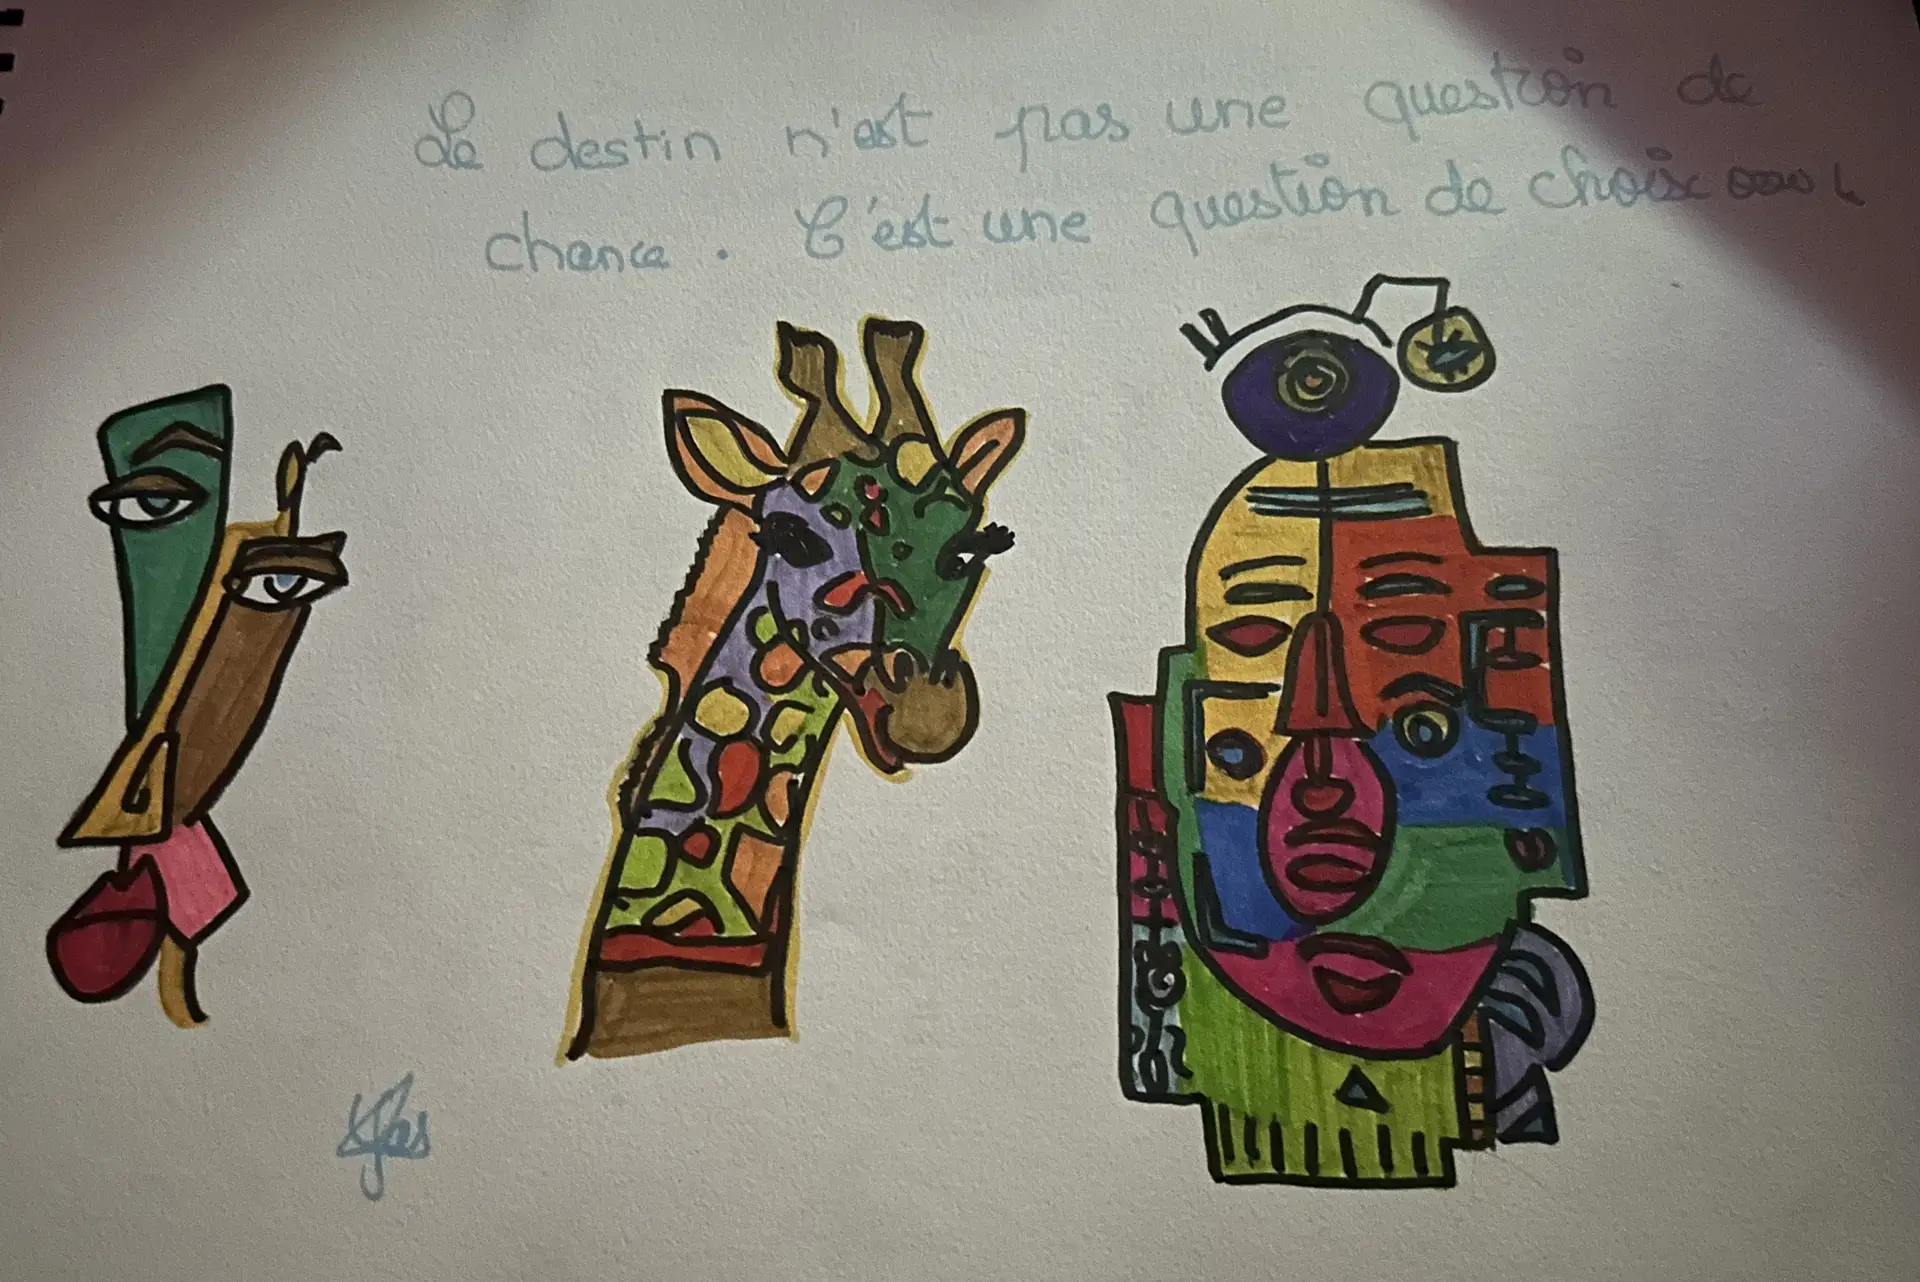 Le destin n'est pas une question de
chance. C'est une question de choix